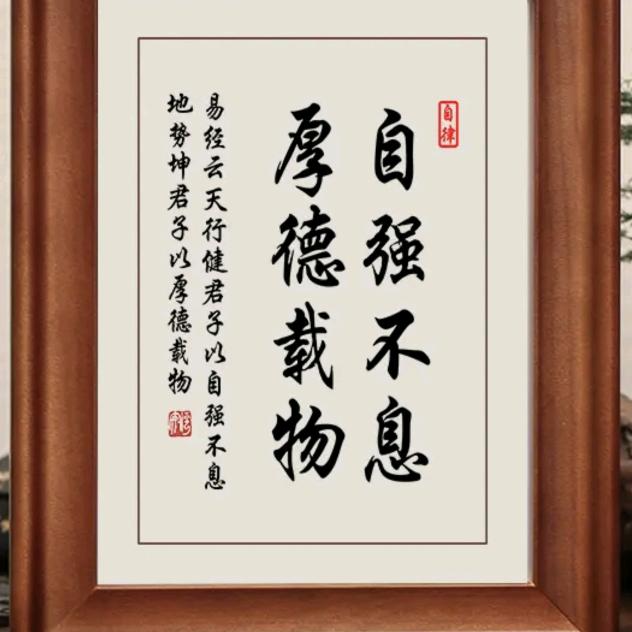 自律
自强不息
厚德载物
易经云天行健君子以自强不息
地势坤君子以厚德载物